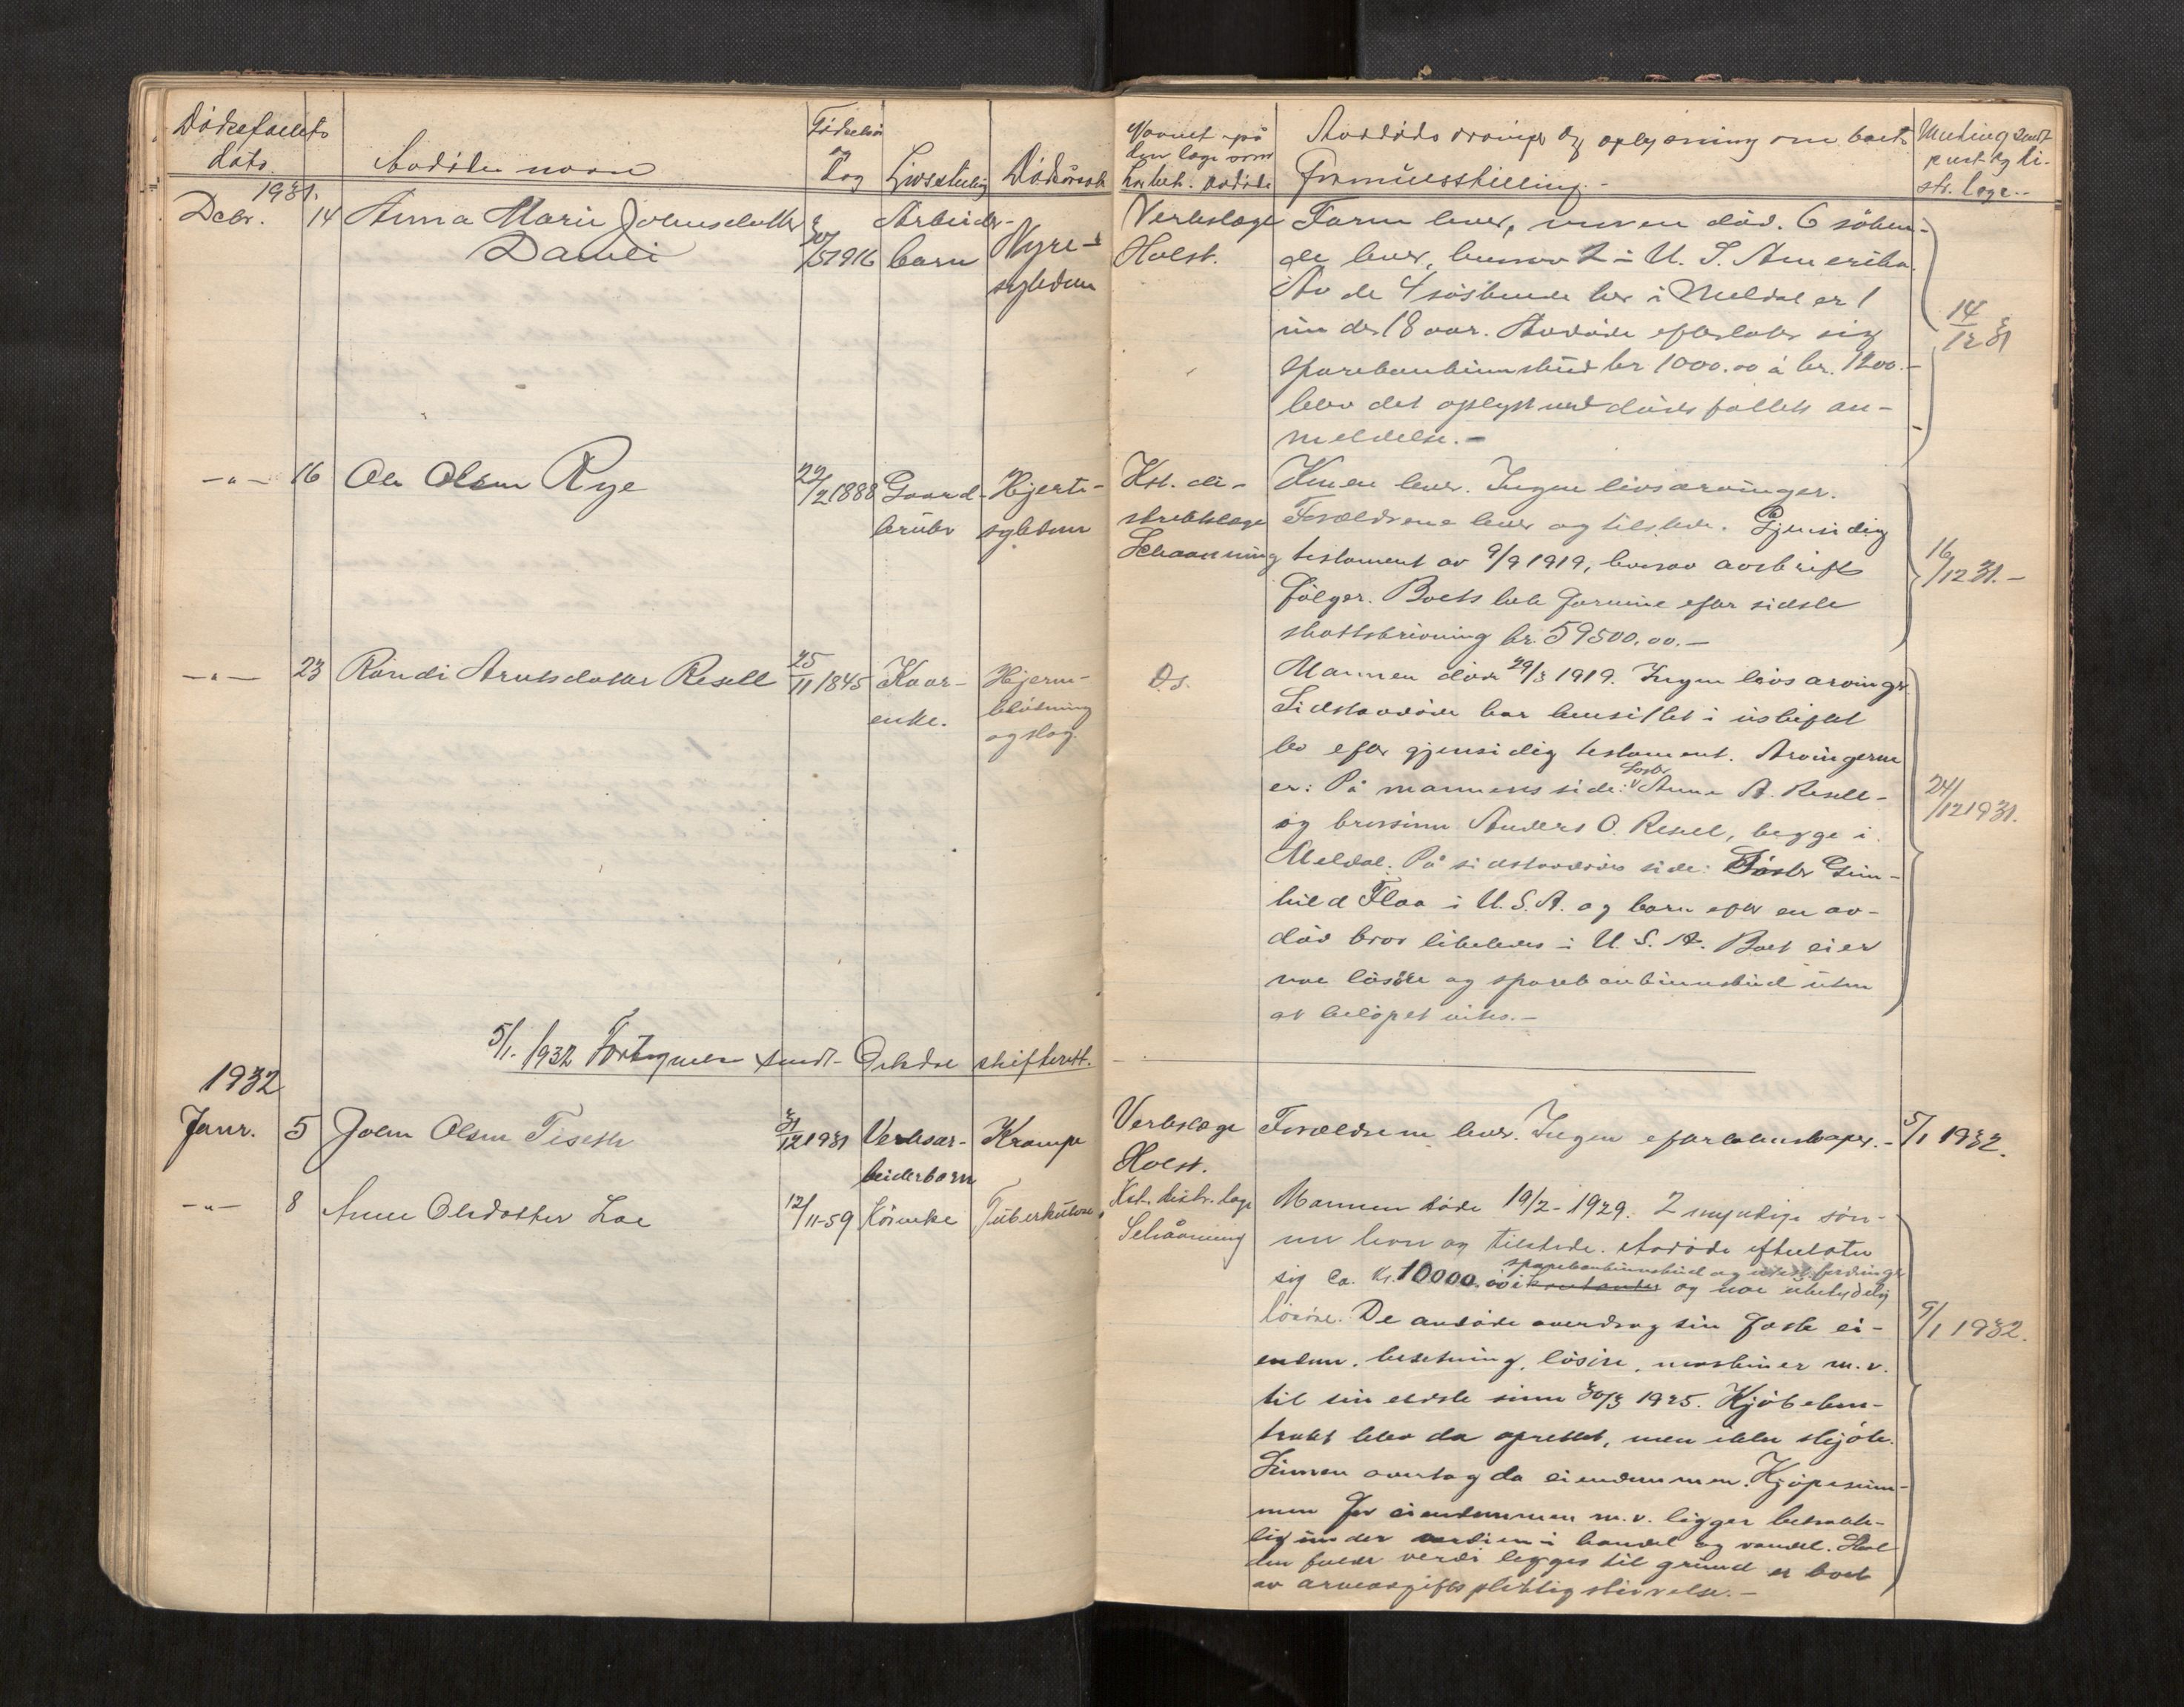 Dødsfallets dato.
Avdødes navn
Fødselsår og Dag
Livsstilling
Dødsårsak
Navnet på den læge som har beh. avdøde
Avdødes arvinger og oplysning om boets formuesstilling.-
Melding sendt distr. læge..
1931.
Debr. 14 Anna Marie Johnsdatter
Damli
30/5 1916
Arbeider-
barn
Nyre-
sykdom
Verkslæge
Holst.
Faren lever, moren død. 6 søken-
de lever, hvorav 2 i U. S. Amerika.
Av de 4 søskende her i Meldal er 1
under 18 aar. Avdøde efterlater sig
sparebankinnskud kr 1000.00 à kr. 1200.-
blev det oplyst ved dødsfallets an-
meldelse.-
14/12 31
-"- 16 Ole Olsen Rye
22/2 1888
Gaard-
bruker
Hjerte-
sykdom
Kst. di-
striktslæge
Schaanning
Konen lever. Ingen livsarvinger.
Forældrene lever og tilstede. Gjensidig
testament av 9/9 1919, hvorav avskrift
følger. Boets hele formue efter sidste
skattskrivning kr. 59500.00.-
16/12 31.-
-"- 23 Randi Arntsdatter Resell
25/11 1845
Kaar-
enke.
Hjerne-
blødning
og slag.
Ds.
Mannen døde 29/3 1919. Ingen livsarvinger.
Sidstavdøde har hensittet i uskiftet
bo efter gjensidig testament. Arvingerne
er: På mannens side: Søster Anne A. Resell-
og brorsønn Anders O. Resell, begge i
Meldal. På sidstavdødes side: Søster Gun-
hild Flaa i U.S.A. og barn efter en av-
død bror likeledes i U. S. A. Boet eier
noe løsøre og sparebankinnskud uten
at beløpet vites.-
24/12 1931.
5/1. 1932 Fortegnelse sendt Orkdal skifterett.
1932
Janr. 5 John Olsen Tiseth
31/12 1931
Verksar-
beiderbarn
Krampe
Verkslæge
Holst.
Forældrene lever. Ingen efterlatenskaper.-
5/1 1932.
-"- 8 Anne Olsdatter Loe
12/11-59
Kårenke
Tuberkulose
Kst. distr. læge
Schåanning
Mannen døde 19/2-1929. 2 myndige søn-
ner lever og tilstede. Avdøde efterlater
sparebankinnskud og utest. fordringer
sig ca. kr. 10000.00 i kontanter og noe ubetydelig
løsøre. De avdøde overdrog sin faste ei-
endom, besetning, løsøre, maskiner m.v.
til sin eldste sønn 30/3 1925. Kjøbekon-
trakt blev da oprettet, men ikke skjøte.
Sønnen overtog da eiendommen. Kjøpesum-
men for eiendommen m.v. ligger betrakte-
lig under verdien i handel og vandel. Skal
den fulde verdi legges til grund er boet
av arveavgiftspliktig størrelse.-
9/1 1932.